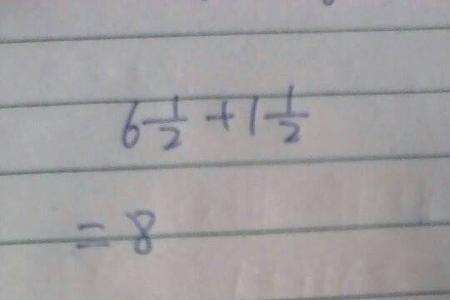 6 1/2 + 1 1/2
= 8